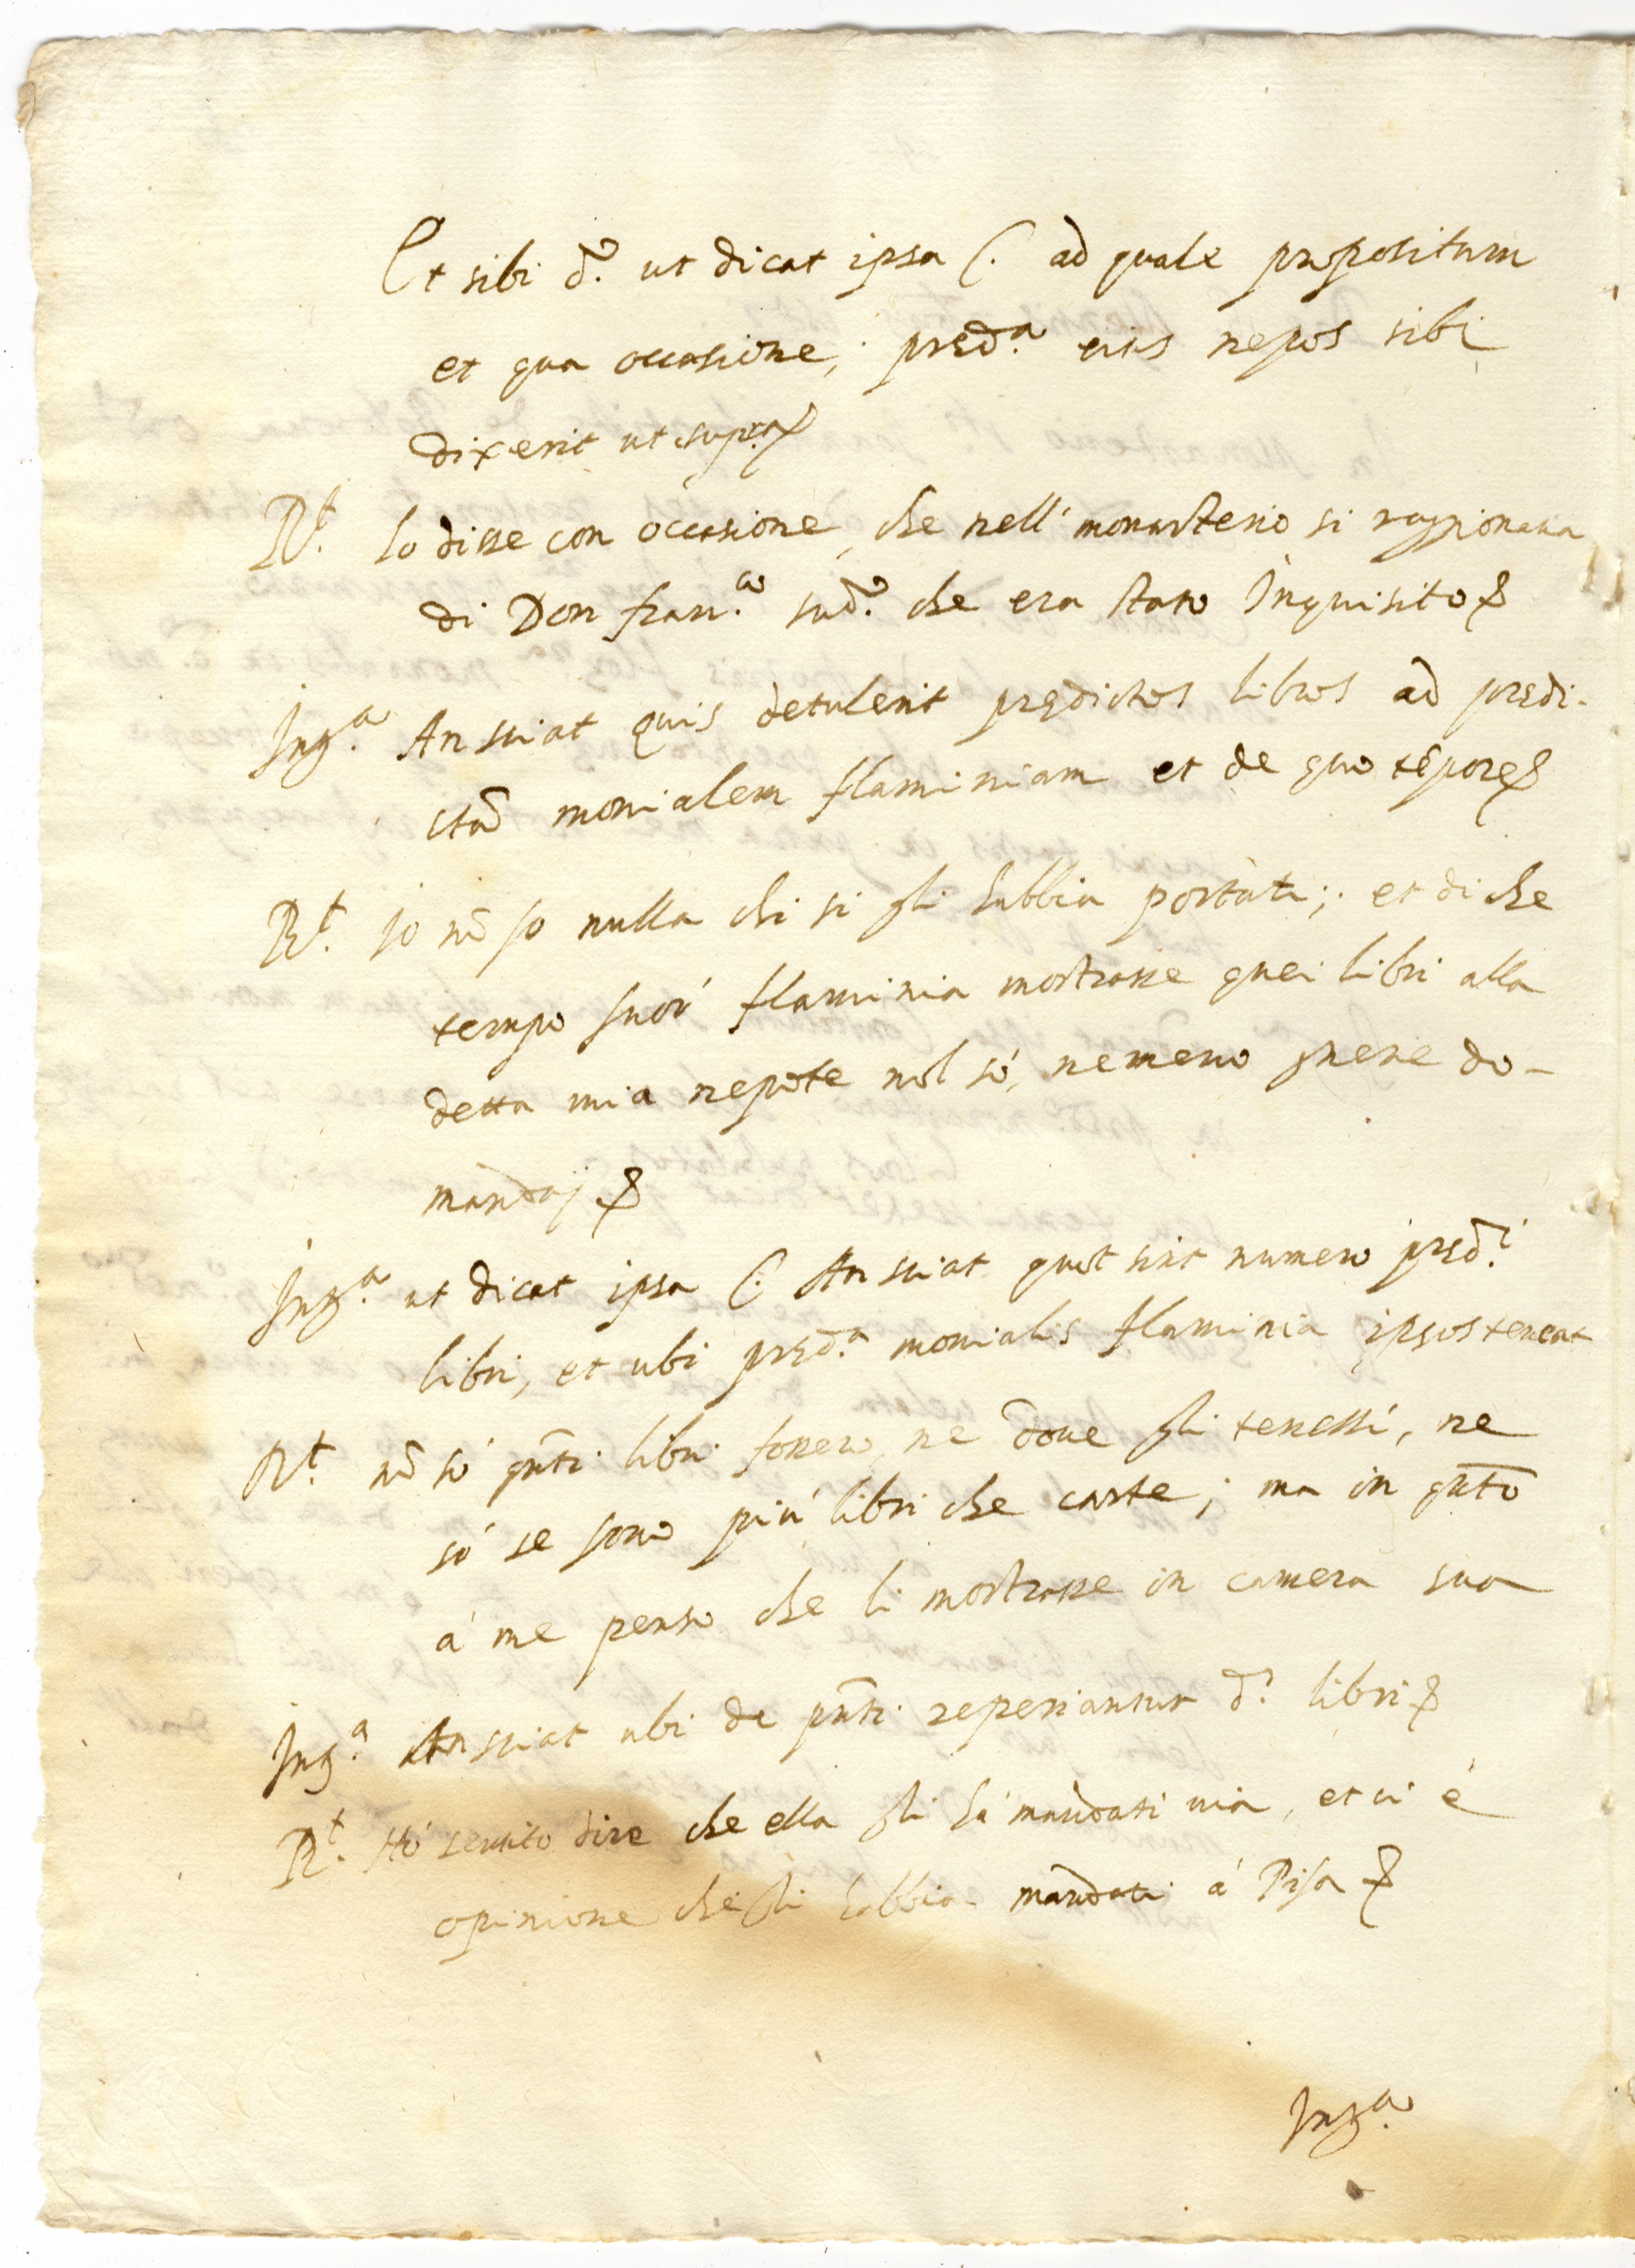 Et sibi d.º ut dicat ipsa C. ad quale propositum
et qua occasione, pred.ª eius nepos sibi
dixerit ut supra
R.t Lo disse con occasione, che nell' monasterio si raggionava
di Don Fran.co sud.º che era stato Inquisito
Ing.ª An sciat quis detulerit predictos libros ad predi-
ctã monialem flaminiam et de quo tẽpore
R.t Io nõ so nulla chi si gli habbia portàti; et di che
tempo suor' flaminia mostrasse quei libri alla
detta mia nepote nol só, nemeno gnene do-
mandaj
Ing.ª ut dicat ipsa C. An sciat quot sint numero pred.i
libri, et ubi pred.ª monialis flaminia ipsos teneat
R.t nõ só qñti libri fonero, ne dove gli tenessi, ne
só se sono piú libri che carte; ma in qñto
á me penso che li mostrasse in camera sua
Ing.ª An sciat ubi de pñti reperiantur d.i libri
R.t Hó sentito dire che ella gli há mandati via, et vi é
opinione che gli habbia mandati á Pisa
Ing.ª